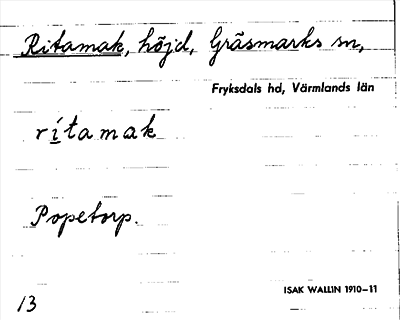 Ritamak, höjd, Gräsmarks sn,
Fryksdals hd, Värmlands län
rítamak
Popetorp.
ISAK WALLIN 1910-11
13